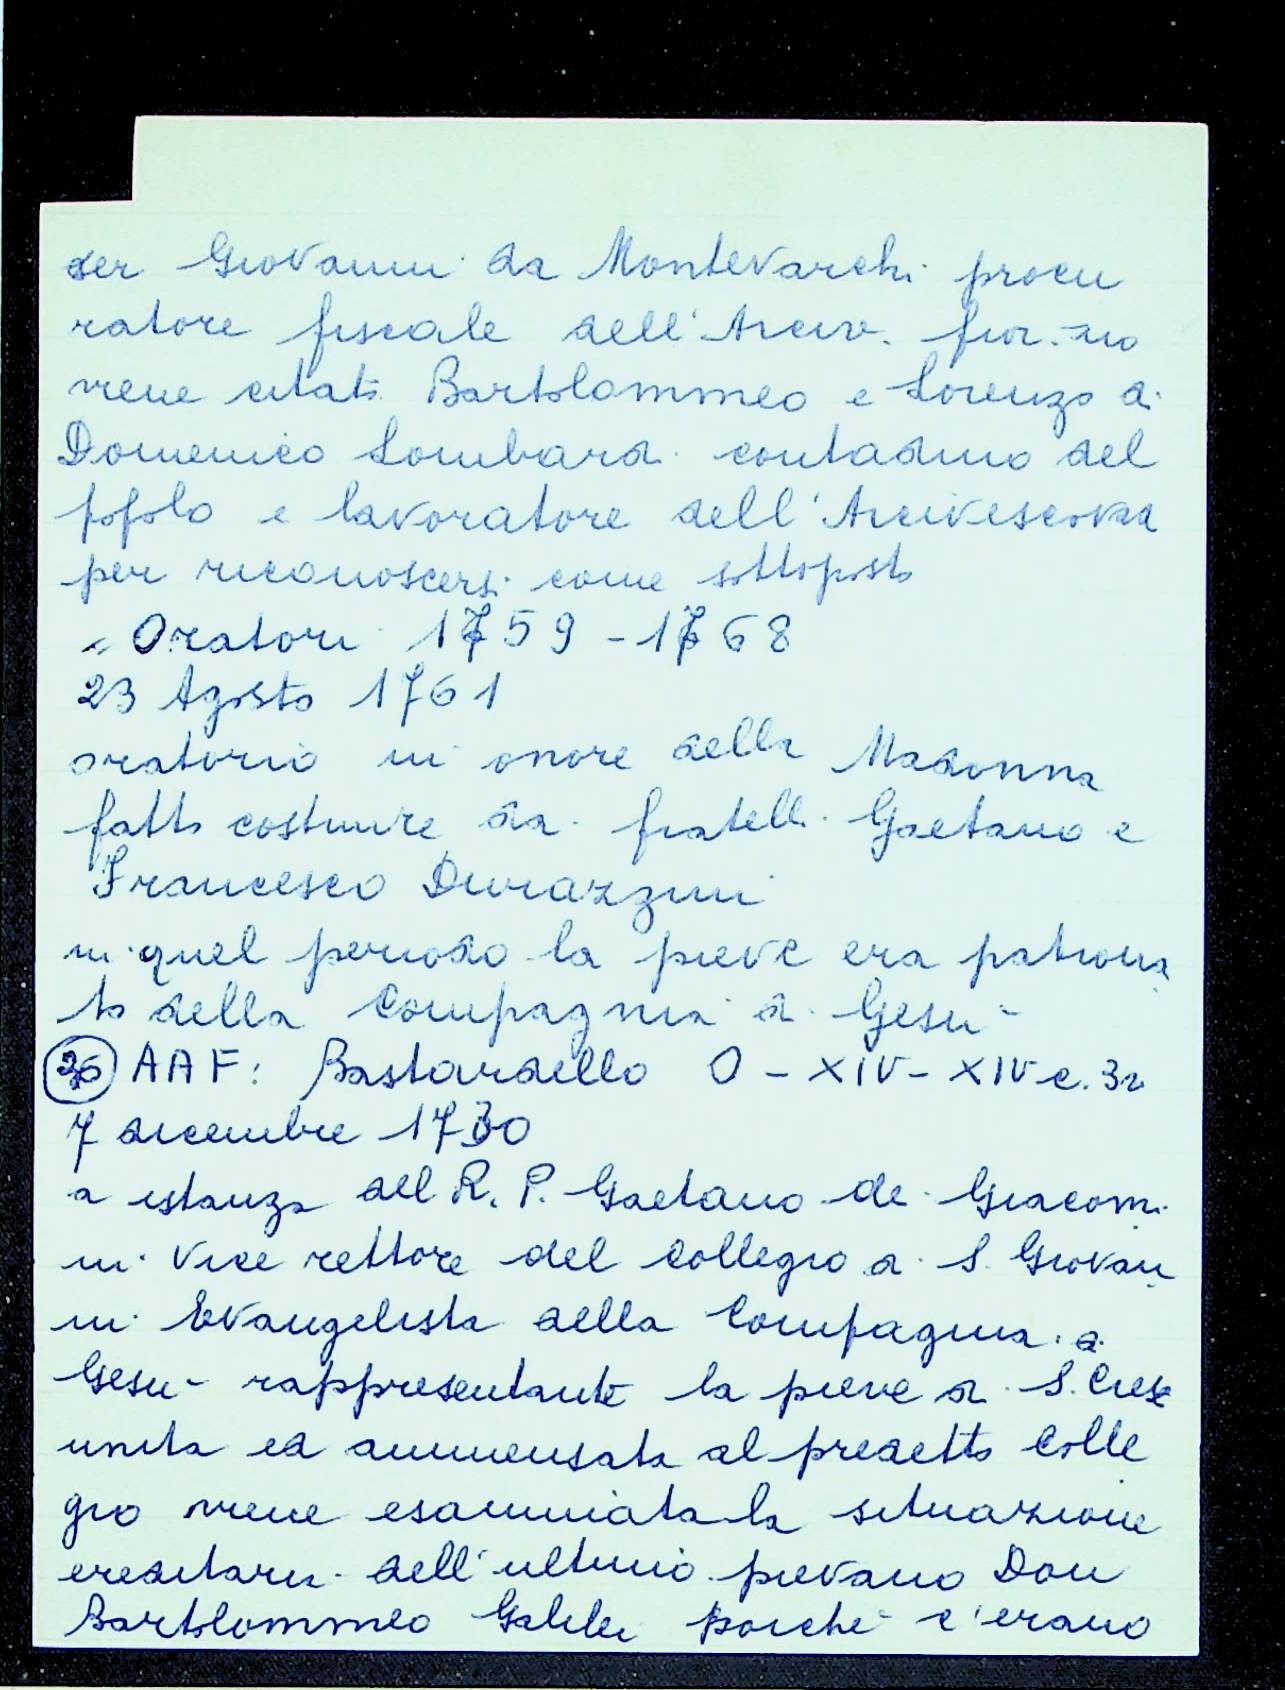 ser Giovanni da Montevarchi procu
ratore fiscale dell'Arciv. fior.no
viene citati Bartolommeo e Lorenzo di
Domenico Lombardi contadino del
popolo e lavoratore dell'Arcivescovad
per riconoscersi come sottoposto
" Oratori 1759 - 1768
23 Agosto 1761
oratorio in onore della Madonna
fatto costruire dai fratelli Gaetano e
Francesco Durazzini
in quel periodo la pieve era patrona
to della Compagnia di Gesù
36 AAF: Bastardello O - XIV - XIV c. 3r
7 dicembre 1730
a istanza del R. P. Gaetano de Giacomi
ni Vice rettore del Collegio di S. Giovan
ni Evangelista della Compagnia di
Gesù rappresentante la pieve di S. Cresc
unita ed ammensata al predetto Colle
gio viene esaminata la situazione
ereditaria dell'ultimo pievano Don
Bartolommeo Galilei poiché c'erano